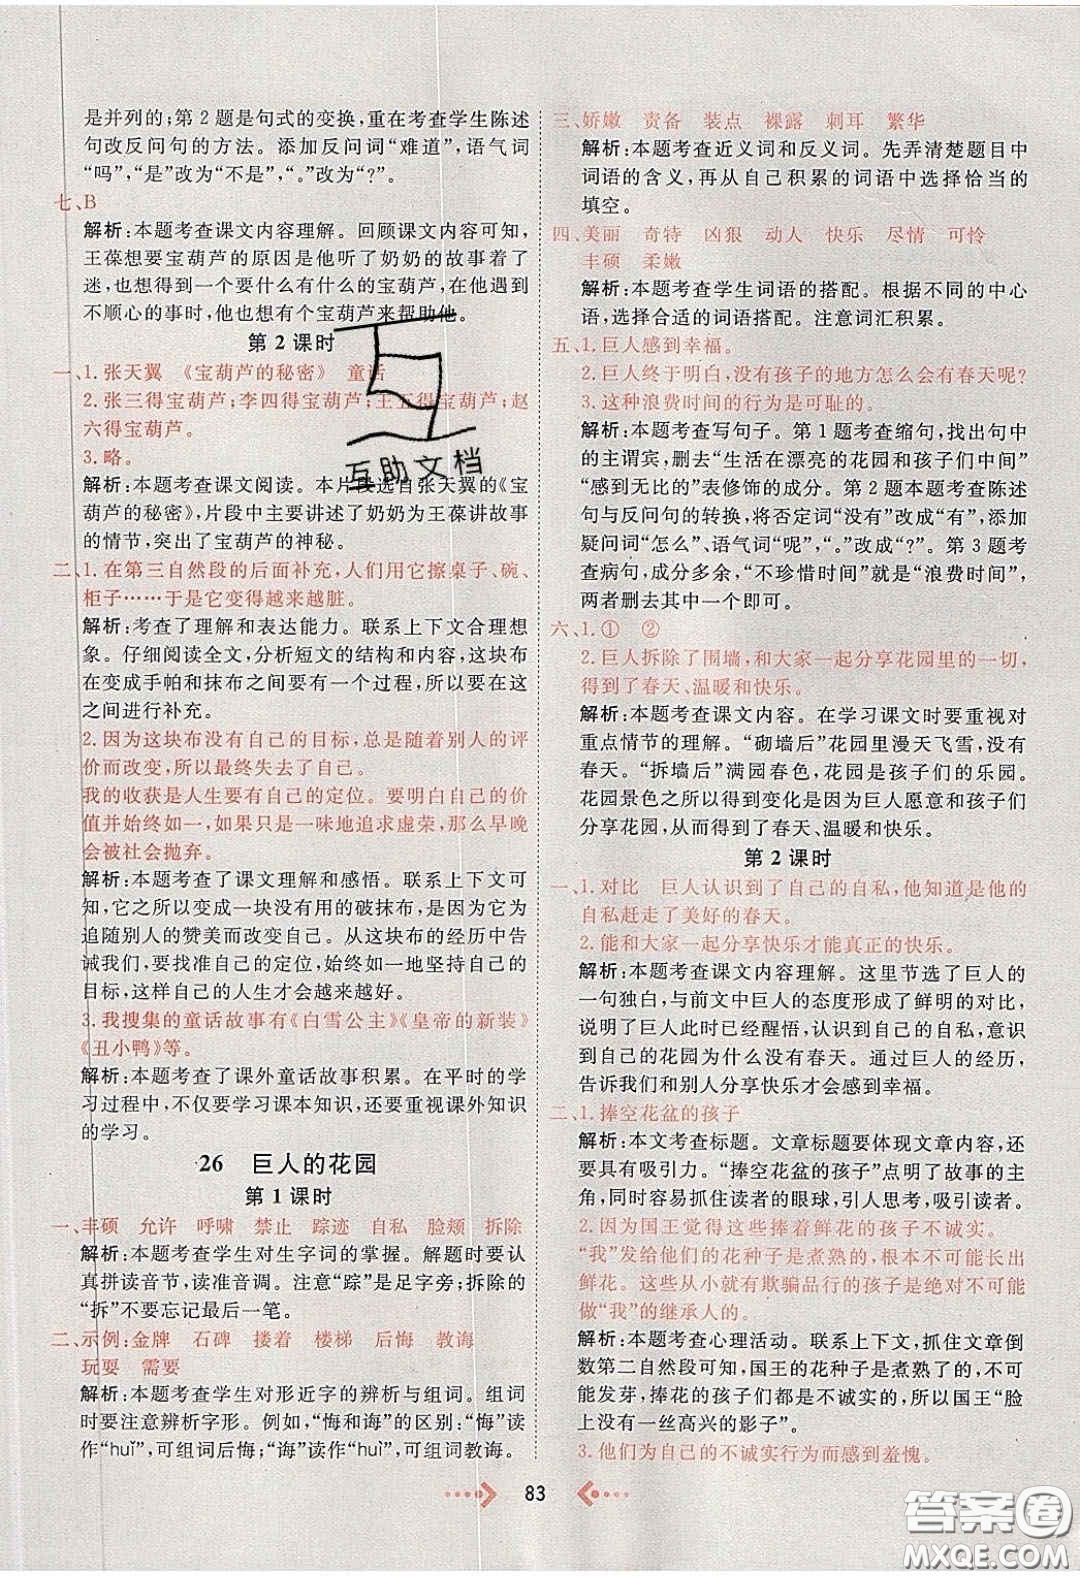 是并列的；第2题是句式的变换，重在考查学生陈述
句改反问句的方法。添加反问词“难道”，语气词
“吗”，“是”改为“不是”，“。”改为“?”。
七、B
解析：本题考查课文内容理解。回顾课文内容可知，
王葆想要宝葫芦的原因是他听了奶奶的故事着了
迷，也想得到一个要什么有什么的宝葫芦，在遇到
不顺心的事时，他也想有个宝葫芦来帮助他。
第2课时
一、1.张天翼 《宝葫芦的秘密》 童话
2.张三得宝葫芦；李四得宝葫芦；王五得宝葫芦；赵
六得宝葫芦。
3.略。
解析：本题考查课文阅读。本片段选自张天翼的《宝
葫芦的秘密》，片段中主要讲述了奶奶为王葆讲故事
的情节，突出了宝葫芦的神秘。
二、1.在第三自然段的后面补充，人们用它擦桌子、碗、
柜子……于是它变得越来越脏。
解析：考查了理解和表达能力。联系上下文合理想
象。仔细阅读全文，分析短文的结构和内容，这块布
在变成手帕和抹布之间要有一个过程，所以要在这
之间进行补充。
2.因为这块布没有自己的目标，总是随着别人的评
价而改变，所以最终失去了自己。
我的收获是人生要有自己的定位。要明白自己的价
值并始终如一，如果只是一味地追求虚荣，那么早晚
会被社会抛弃。
解析：本题考查了课文理解和感悟。联系上下文可
知，它之所以变成一块没有用的破抹布，是因为它为
追随别人的赞美而改变自己。从这块布的经历中告
诫我们，要找准自己的定位，始终如一地坚持自己的
目标，这样自己的人生才会越来越好。
3.我搜集的童话故事有《白雪公主》《皇帝的新装》
《丑小鸭》等。
解析：本题考查了课外童话故事积累。在平时的学
习过程中，不仅要学习课本知识，还要重视课外知识
的学习。
26 巨人的花园
第1课时
一、丰硕 允许 呼啸 禁止 踪迹 自私 脸颊 拆除
解析：本题考查学生对生字词的掌握。解题时要认
真拼读音节，读准音调。注意“踪”是足字旁；拆除的
“拆”不要忘记最后一笔。
二、示例：金牌 石碑 搂着 楼梯 后悔 教诲
玩耍 需要
解析：本题考查学生对形近字的辨析与组词。组词
时要注意辨析字形。例如，“悔和诲”的区别：“悔”读
作“huǐ”，可组词后悔；“诲”读作“huì”，可组词教诲。
三、娇嫩 责备 装点 裸露 刺耳 繁华
解析：本题考查近义词和反义词。先弄清楚题目中
词语的含义，再从自己积累的词语中选择恰当的
填空。
四、美丽 奇特 凶狠 动人 快乐 尽情 可怜
丰硕 柔嫩
解析：本题考查学生词语的搭配。根据不同的中心
语，选择合适的词语搭配。注意词汇积累。
五、1.巨人感到幸福。
2.巨人终于明白，没有孩子的地方怎么会有春天呢?
3.这种浪费时间的行为是可耻的。
解析：本题考查写句子。第1题考查缩句，找出句中
的主谓宾，删去“生活在漂亮的花园和孩子们中间”
“感到无比的”表修饰的成分。第2题本题考查陈述
句与反问句的转换，将否定词“没有”改成“有”，添加
疑问词“怎么”、语气词“呢”，“。”改成“?”。第3题考
查病句，成分多余，“不珍惜时间”就是“浪费时间”，
两者删去其中一个即可。
六、1.① ②
2.巨人拆除了围墙，和大家一起分享花园里的一切，
得到了春天、温暖和快乐。
解析：本题考查课文内容。在学习课文时要重视对
重点情节的理解。“砌墙后”花园里漫天飞雪，没有
春天。“拆墙后”满园春色，花园是孩子们的乐园。
花园景色之所以得到变化是因为巨人愿意和孩子们
分享花园，从而得到了春天、温暖和快乐。
第2课时
一、1.对比 巨人认识到了自己的自私，他知道是他的
自私赶走了美好的春天。
2.能和大家一起分享快乐才能真正的快乐。
解析：本题考查课文内容理解。这里节选了巨人的
一句独白，与前文中巨人的态度形成了鲜明的对比，
说明了巨人此时已经醒悟，认识到自己的自私，意识
到自己的花园为什么没有春天。通过巨人的经历，
告诉我们和别人分享快乐才会感到幸福。
二、1.捧空花盆的孩子
解析：本文考查标题。文章标题要体现文章内容，
具有吸引力。“捧空花盆的孩子”点明了故事的主
角，同时容易抓住读者的眼球，引人思考，吸引读者。
2.因为国王觉得这些捧着鲜花的孩子不诚实。
“我”发给他们的花种子是煮熟的，根本不可能长出
鲜花。这些从小就有欺骗品行的孩子是绝对不可能
做“我”的继承人的。
解析：本题考查心理活动。联系上下文，抓住文章倒
数第二自然段可知，国王的花种子是煮熟的，不可
能发芽，捧花的孩子们都是不诚实的，所以国王“脸
上没有一丝高兴的影子”。
3.他们为自己的不诚实行为而感到羞愧。
83
互助文档
答案圈
MXQE.COM